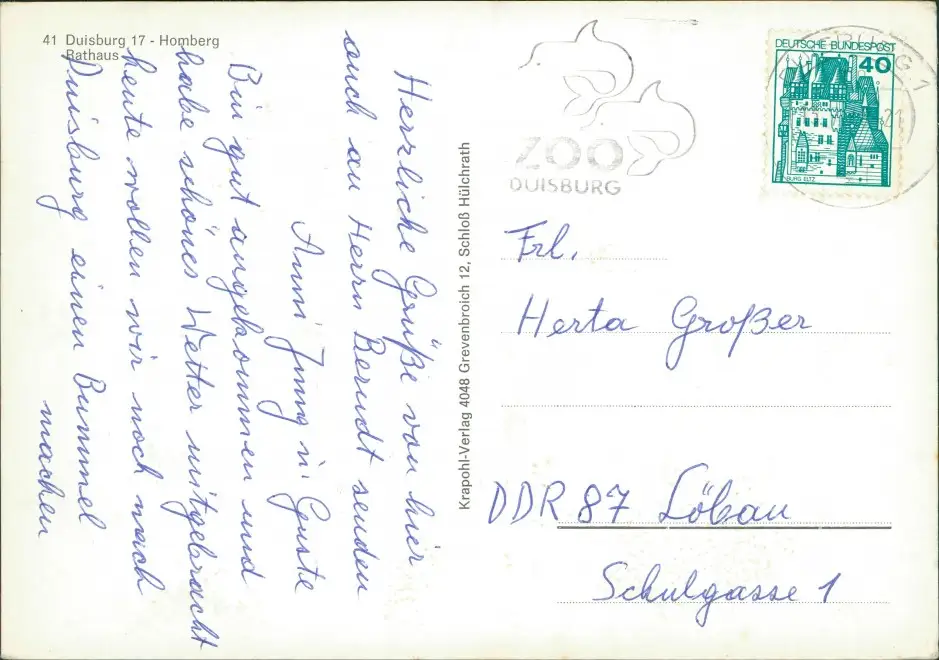 41 Duisburg 17 - Homberg
Rathaus
Herrliche Grüße von hier
auch an Herrn Berndt senden
Anni Jung u. Guste
Bin gut angekommen und
habe schönes Wetter mitgebracht
heute wollen wir noch nach
Duisburg einen Bummel
machen
Krapohl-Verlag 4048 Grevenbroich 12, Schloß Hülchrath
ZOO
DUISBURG
DEUTSCHE BUNDESPOST
40
BURG ELTZ
Frl.
Herta Großer
DDR 87 Löbau
Schulgasse 1